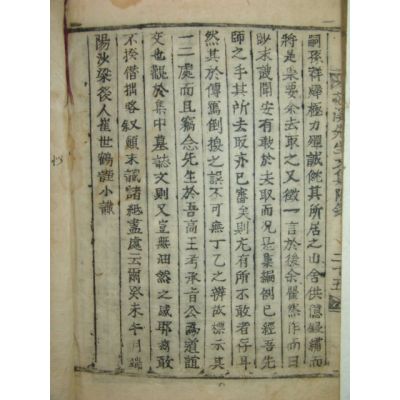 嗣孫群極力殫誠飭其所居之山舍供億録繡而
將是要余去取之又徵一言於後余瞿然作而曰
眇末謏聞安有敢去取是集編例已經吾先
師之手其所去取亦已審矣則尤有所不敢者存耳
然其於傳寫倒換之誤不可無丁乙之辨故標示其
一二處而且竊念先生於吾高王考承旨公為道誼
交也觀於集中墓誌文則又豈無油然之感耶敢
不揆僭拙略叙顛末識諸紙盡處云爾癸未午月端
陽沙梁後人崔世鶴謹小識
先生文集附錄
二十五